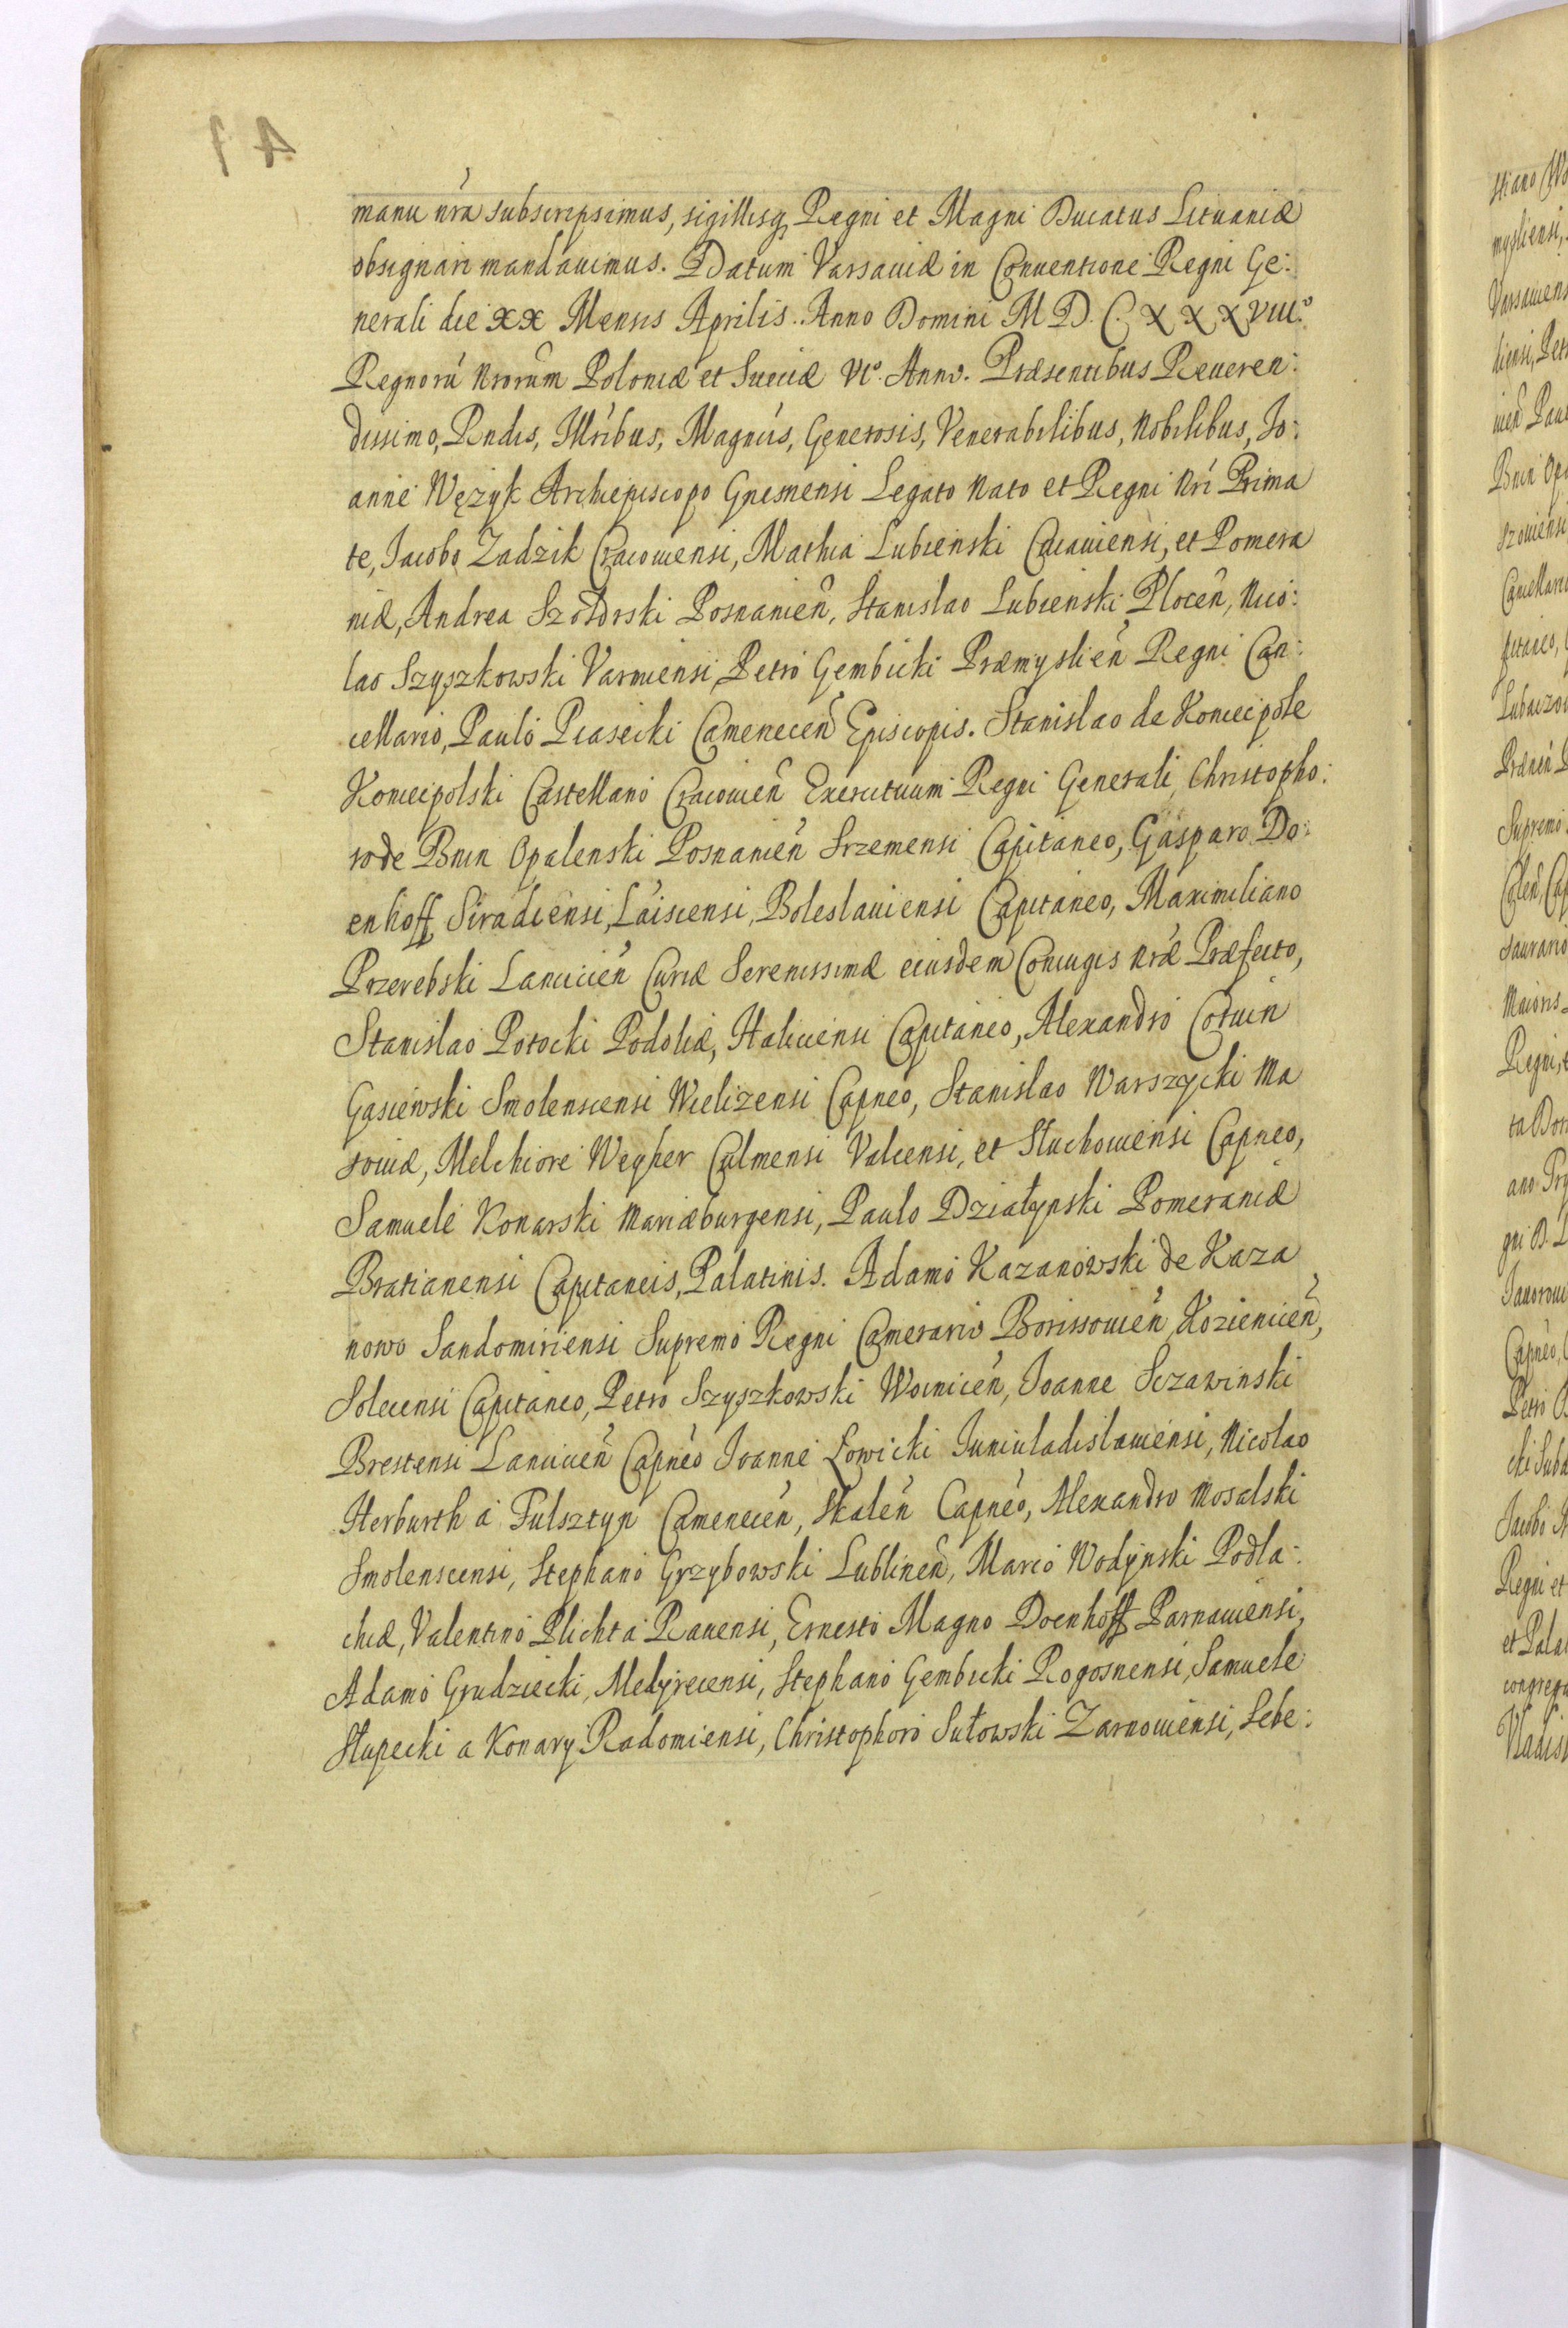 manu nrã subscripsimus, sigillisq Regni et Magni Ducatus Lituaniæ
obsignari mandauimus. Datum Varsauiæ in Conuentione Regni Ge:
nerali die XX Mensis Aprilis. Anno Domini M D. C. X X X VIII.º
Regnorũ Nrorum Poloniæ et Sueciæ VIº. Anno. Præsentibus Reueren:
dissimo, Rndis, Illribus, Magnιis, Generosis, Venerabilibus, Nobilibus, Jo:
anne Wężyk Archiepiscopo Gnesnensi Legato Nato et Regni Nri Prima
te, Jacobo Zadzik Cracouiensi, Mathia Lubienski Cuiauiensi, et Pomera
niæ, Andrea Szołdrski Posnanień, Stanislao Lubienski Ploceń, Nico:
lao Szyszkowski Varmiensi, Petro Gembicki Præmyslień Regni Can:
cellario, Paulo Piasecki Cameneceń Episcopis. Stanislao de Koniecpole
Koniecpolski Castellano Cracouień Exercituum Regni Generali, Christopho:
ro de Bnin Opalenski Posnanień Srzemensi Capitaneo, Gasparo Do:
enhoff, Siradiensi, Laiscensi, Boleslauiensi Capitaneo, Maximiliano
Przerebski Lancicień Curiæ Serenissimæ eiusdem Coniugis Nræ Præfecto,
Stanislao Potocki Podoliæ, Haliciensi Capitaneo, Alexandro Coruin
Gąsiewski Smolenscensi Wielizensi Capneo, Stanislao Warszycki Ma
souiæ, Melchiore Weyher Culmensi Valcensi, et Sluchouiensi Capneo,
Samuele Konarski Mariæburgensi, Paulo Działynski Pomeraniæ
Bratianensi Capitaneis, Palatinis. Adamo Kazanowski de Kaza
nowo Sandomiriensi Supremo Regni Camerario Borissouień, Kozieniceń,
Solecensi Capitaneo, Petro Szyszkowski Woiniceń, Joanne Sczawinski
Brestensi Lancicień Capneo Joanne Łowicki Juniuladislauiensi, Nicolao
Herburth a Fulsztyn Cameneceń, Skaleń Capneo, Alexandro Mosalski
Smolenscensi, Stephano Grzybowski Lublineń, Marco Wodynski Podla:
chiæ, Valentino Plichta Rauensi, Ernesto Magno Doenhoff Parnauiensi,
Adamo Grudziecki, Medyrecensi, Stephano Gembicki Rogosnensi, Samuele
Słupecki a Konary Radomiensi, Christophoro Sułowski Zarnouiensi, Sebe: